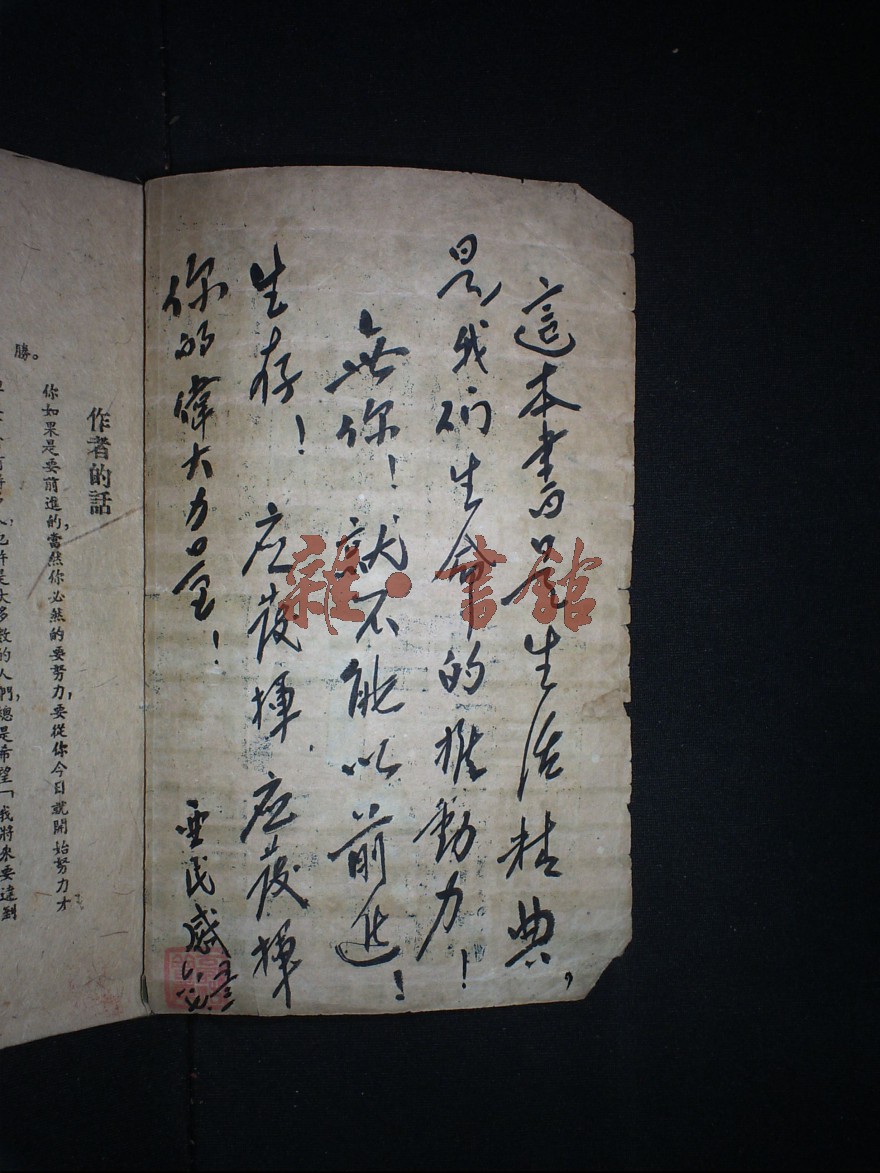 這本書是生活精典，
是我们生命的推動力！
無你！就不能以前进！
生存！应發揮．应發揮
你的偉大力量！
重民感
雜·書館
作者的話
你如果是要前進的，當然你必然的要努力，要從你今日就開始努力才
勝。
人，也許是大多數的人們，總是希望「我將來要達到